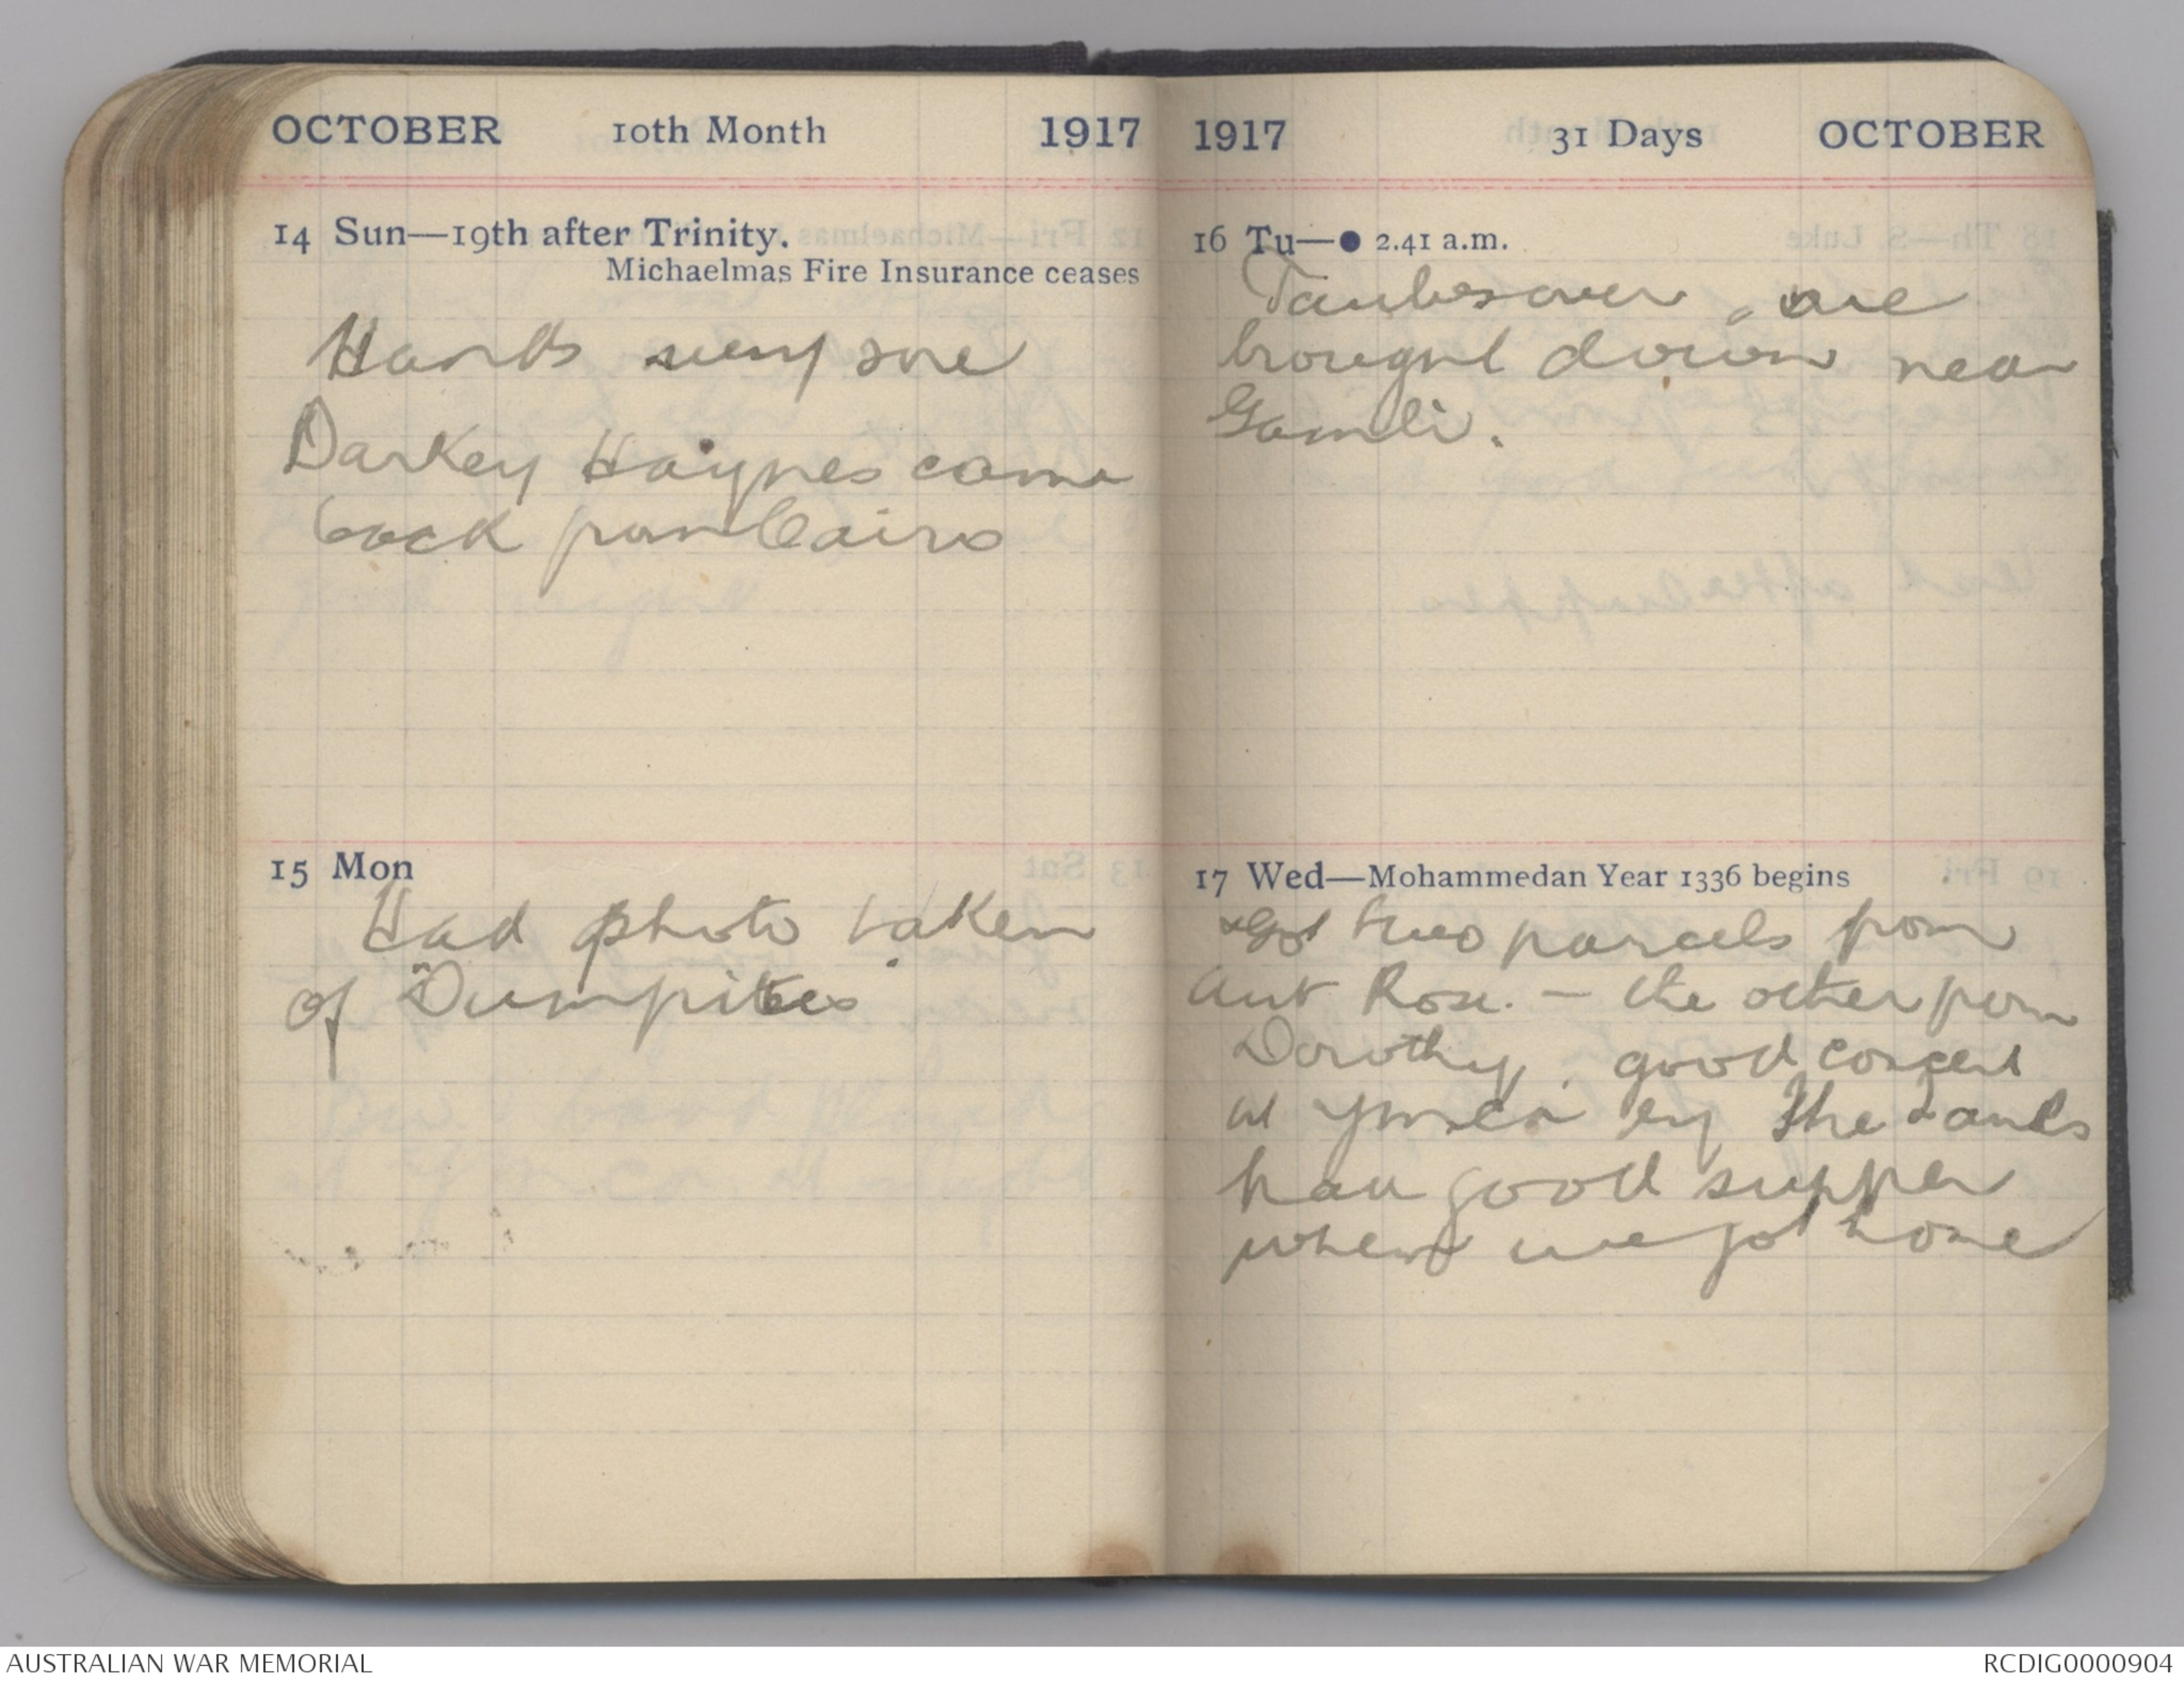 OCTOBER 10th Month 1917
14 Sun—19th after Trinity.
Michaelmas Fire Insurance ceases
Hands very sore
Darkey Haynes came
back from Cairo
15 Mon
Had photo taken
of "Dumpites"
1917 31 Days OCTOBER
16 Tu—● 2.41 a.m.
Taubes over, one
brought down near
Gamli.
17 Wed—Mohammedan Year 1336 begins
Got two parcels from
Aunt Rose. — the other from
Dorothy. good concert
at Ymca by the
had good supper
when we got home
AUSTRALIAN WAR MEMORIAL
RCDIG0000904